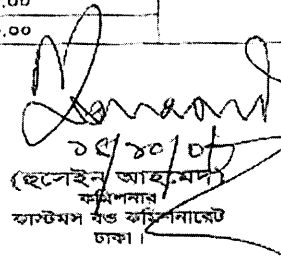 .00
০.০০
(হুসেইন আহমেদ)
কমিশনার
কাস্টমস বন্ড কমিশনারেট
ঢাকা।